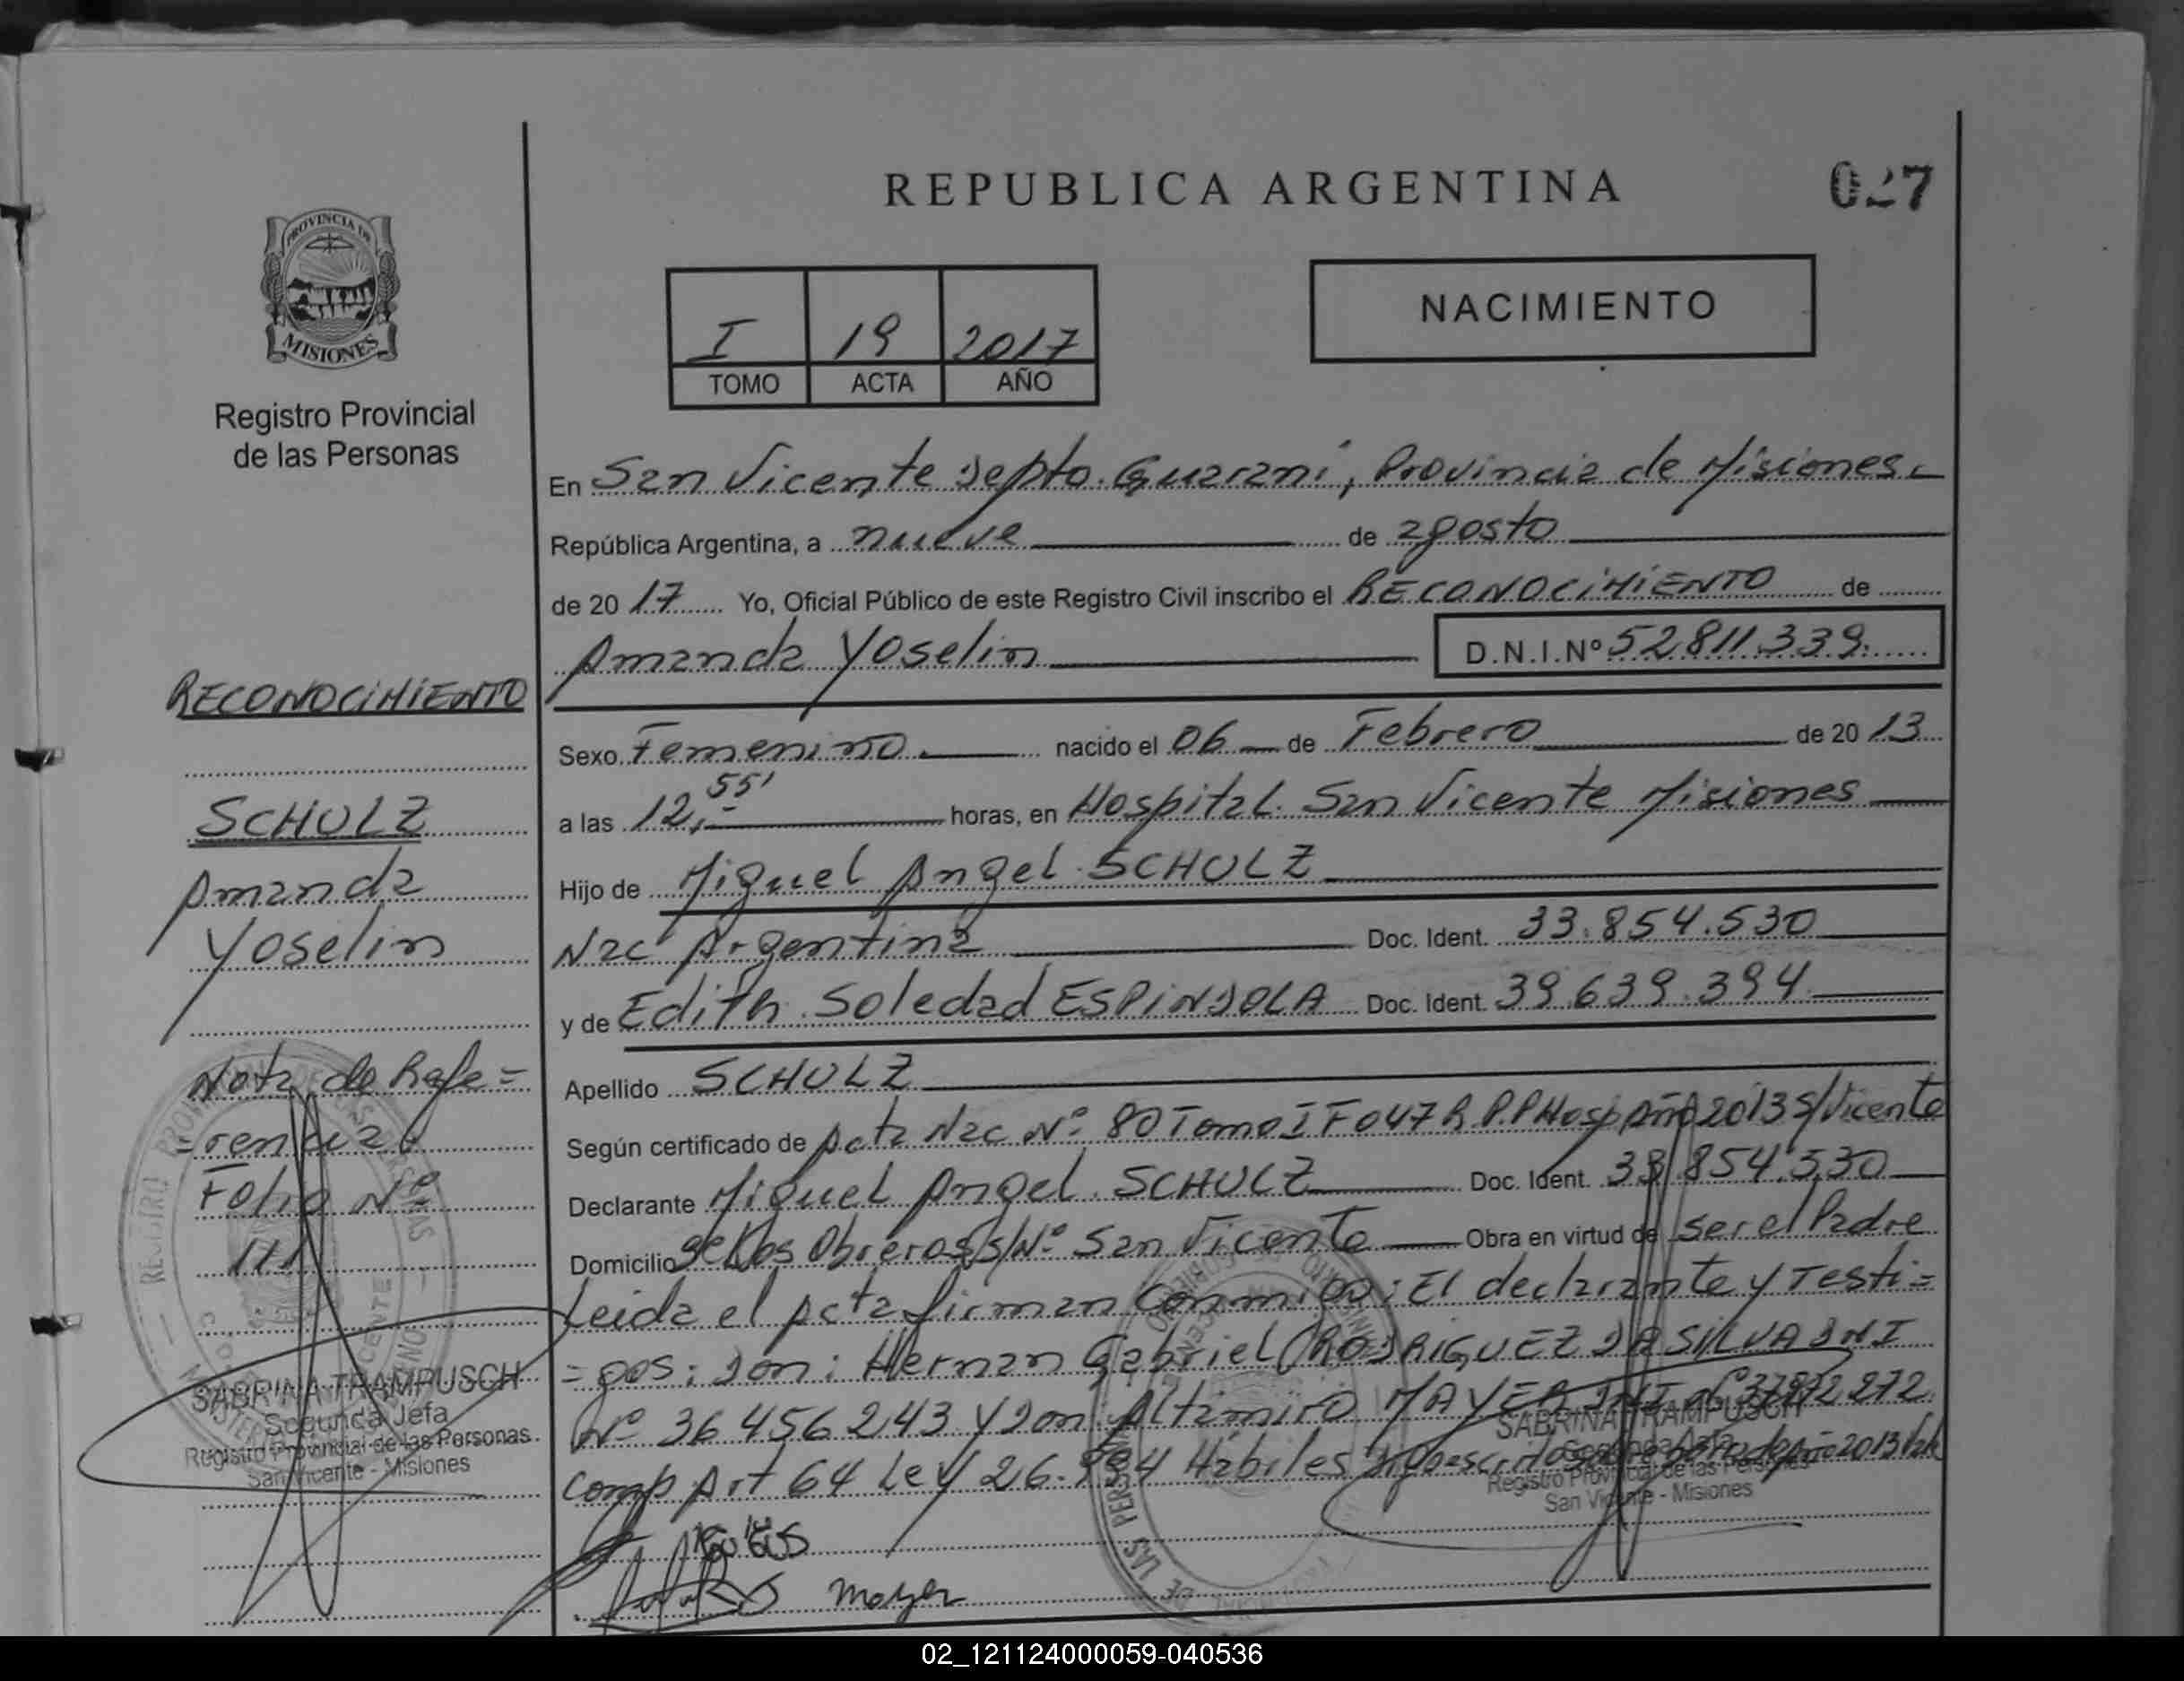 REPUBLICA ARGENTINA
027
PROVINCIA DE
MISIONES
Registro Provincial
de las Personas
I 19 2017
TOMO ACTA AÑO
NACIMIENTO
En San Vicente Depto. Guaraní, Provincia de Misiones.
República Argentina, a nueve de agosto
de 2017 Yo, Oficial Público de este Registro Civil inscribo el RECONOCIMIENTO de
Amanda Yoselin D.N.I.Nº 52.811.339.
Sexo Femenino. nacido el 06 de Febrero de 2013
a las 12,55' horas, en Hospital San Vicente Misiones
Hijo de Miguel Angel SCHULZ
Nac Argentina Doc. Ident. 33.854.530
y de Edith Soledad ESPINDOLA Doc. Ident. 39.639.394
Apellido SCHULZ
Según certificado de Acta Nac Nº 80 Tomo I F 047 R.P.P Hosp Año 2013 S/Vicente
Declarante Miguel Angel SCHULZ Doc. Ident. 33.854.530
Domicilio los Obreros S/Nº San Vicente Obra en virtud de ser el Padre
Leida el Acta firman conmigo: El declarante y Testi=
=gos: Don: Hernan Gabriel RODRIGUEZ DA SILVA DNI
Nº 36.456.243 y Don Altamiro MAYER DNI Nº
Comp Art 64 Ley 26.994 Hábiles
mayer
RECONOCIMIENTO
SCHULZ
Amanda
Yoselin
Nota de Refe=
=rencia
Folio Nº
111
SABRINA TRAMPUSCH
Segunda Jefa
Registro Provincial de las Personas
San Vicente - Misiones
SABRINA TRAMPUSCH
Segunda Jefa
Registro Provincial de las Personas
San Vicente - Misiones
02_121124000059-040536